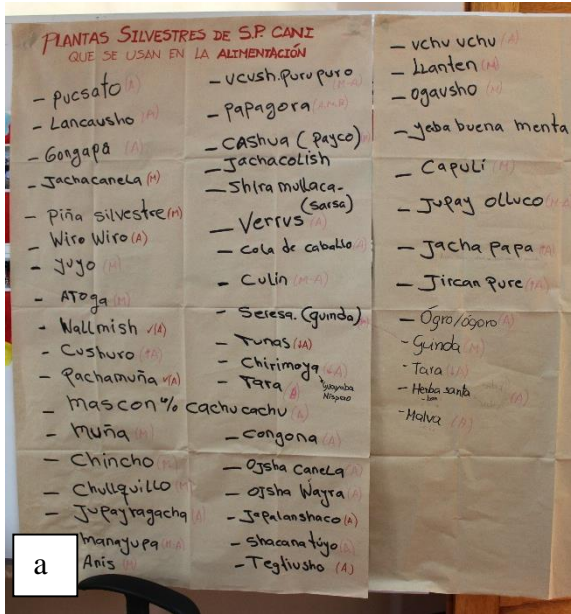 PLANTAS SILVESTRES DE S.P. CANI
QUE SE USAN EN LA ALIMENTACIÓN
- pucsato
- Lancausho (M)
- Gongapa (A)
- Jachacanela (M)
- Piña silvestre (M)
- Wiro Wiro (A)
- yuyo (M)
- Atoga (M)
- Wallmish (A)
- Cushuro (A)
- Pachamuña (A)
- mascon % cachu cachu
- muña (M)
- Chincho (M)
- Chullquillo (M)
- Jupayragacha (A)
- manayupa (M-A)
- Anis (M)
- ucush.purupuro (M-A)
- papagora
- Cashua (payco)
- Jachacolish
- Shira mullaca-
(sarsa)
- Verrus (A)
- cola de caballo (A)
- culin (M-A)
- Seresa. (guinda)
- Tunas (A)
- Chirimoya
- Tara
guayaba
Nispero
- congona (A)
- ojsha canela (A)
- ojsha Wayra (A)
- Japalanshaco (A)
- shacanatuyo (A)
- Tegtiusho (A)
- uchu uchu (A)
- Llanten (M)
- ogausho (M)
- yeba buena menta
- Capulí (M)
- Jupay olluco (M-A)
- Jacha papa (A)
- Jircan pure (A)
- Ógro/ógoro (A)
- Guinda (M)
- Tara (A)
- Herba santa (A)
- Malva (A)
a